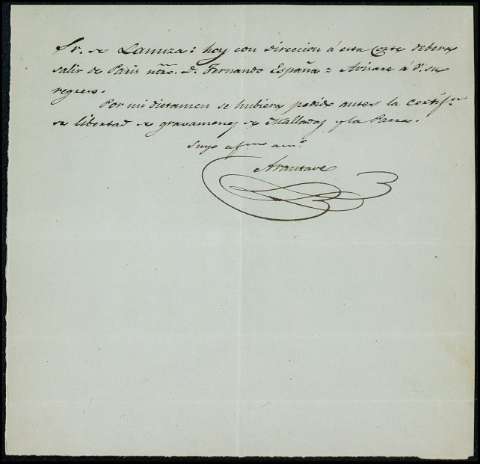 Sr. de Lanuza: hoy con direccion á esta Corte debera
salir de Paris ntro. D. Fernando España = Avisare á V. su
regreso.
Por mi dictamen se hubiera pedido antes la certif.on
de libertad de gravamenes de Malladas y la Parra.
Suyo afmo amo.